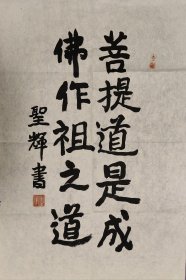 菩提道是成
佛作祖之道
聖輝書